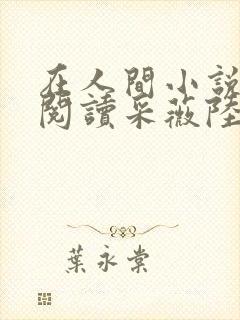 在人間小說
閱讀采薇陸
葉永棠